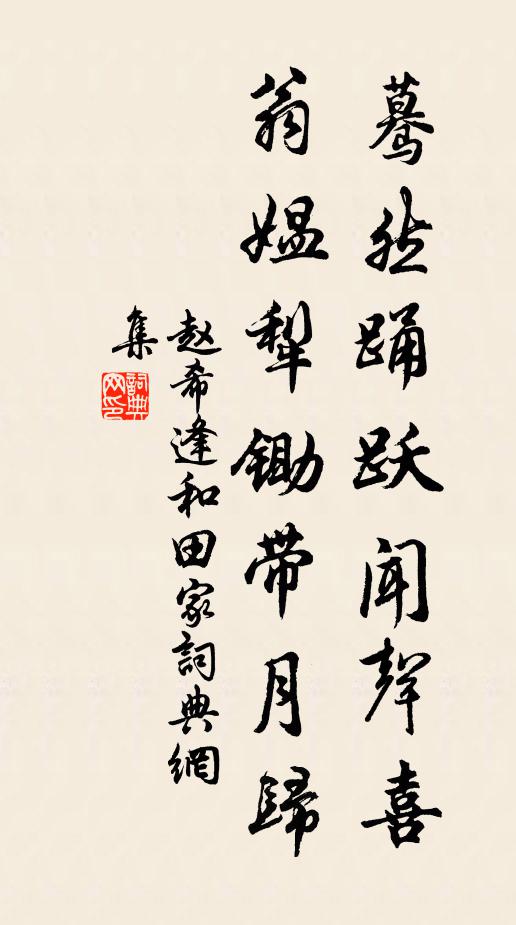 蓦然踊跃闻聲喜
翁媪犁鋤带月歸
赵希逢和田家詞典網
集
詞典
网印